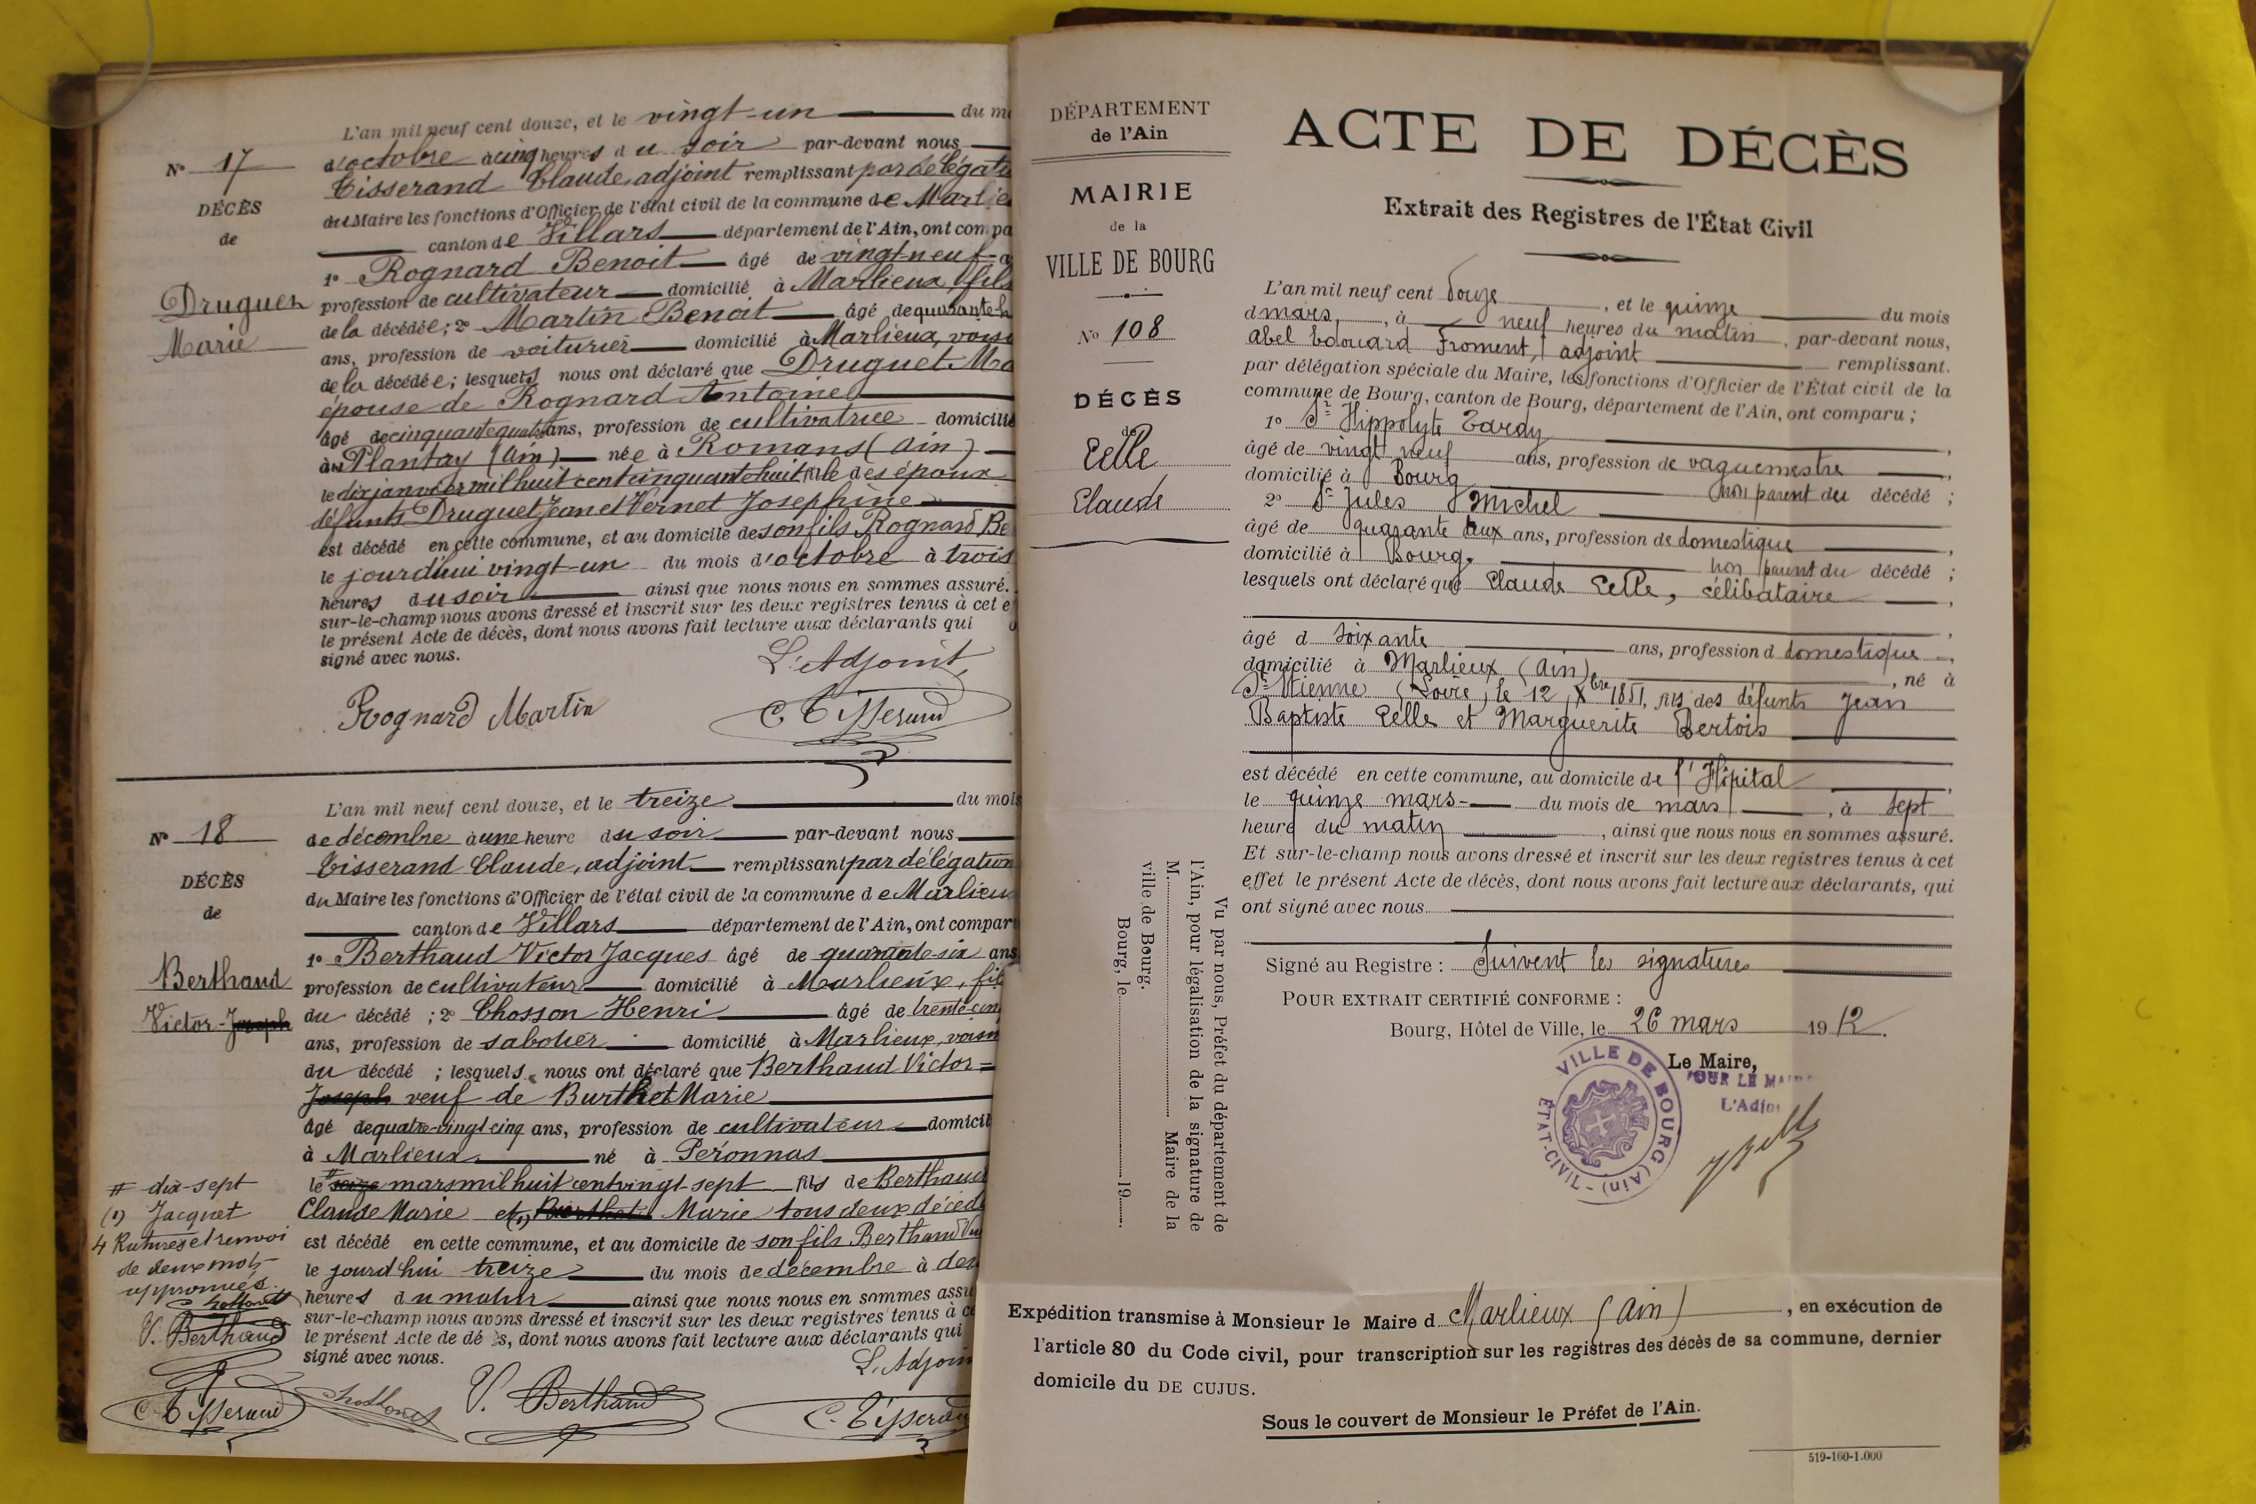 L'an mil neuf cent douze, et le vingt-un du m
N° 17
d'octobre à cinq heures du soir par-devant nous
Tisserand Claude, adjoint remplissant par délégat
DÉCÈS
du Maire les fonctions d'Officier de l'état civil de la commune de Marlie
de
canton de Villars département de l'Ain, ont compa
1° Rognard Benoit âgé de vingt-neuf a
Druguet
profession de cultivateur domicilié à Marlieux, fils
Marie
de la décédée; 2° Martin Benoit âgé de quarante-h
ans, profession de voiturier domicilié à Marlieux, vois
de la décédée; lesquels nous ont déclaré que Druguet Ma
épouse de Rognard Antoine
âgé de cinquante quatre ans, profession de cultivatrice domicilié
au Plantay (Ain) née à Romans (Ain)
le dix janvier mil huit cent cinquante huit fille des époux
défunts Druguet Jean et Vernet Josephine
est décédé en cette commune, et au domicile de son fils Rognard Be
le jourd'hui vingt-un du mois d'octobre à trois
heures du soir ainsi que nous nous en sommes assuré.
sur-le-champ nous avons dressé et inscrit sur les deux registres tenus à cet e
le présent Acte de décès, dont nous avons fait lecture aux déclarants qui
signé avec nous.
L'Adjoint
Rognard Martin
C. Tisserand
L'an mil neuf cent douze, et le treize du mois
N° 18
de décembre à une heure du soir par-devant nous
Tisserand Claude, adjoint remplissant par délégation
DÉCÈS
du Maire les fonctions d'Officier de l'état civil de la commune de Marlieux
de
canton de Villars département de l'Ain, ont compar
1° Berthaud Victor Jacques âgé de quarante-six ans
Berthaud
profession de cultivateur domicilié à Marlieux, fils
Victor-Joseph
du décédé; 2° Chosson Henri âgé de trente-cinq
ans, profession de sabotier domicilié à Marlieux, voisin
du décédé; lesquels nous ont déclaré que Berthaud Victor=
Joseph veuf de Burthet Marie
âgé de quatre-vingt-cinq ans, profession de cultivateur domicil
à Marlieux né à Péronnas
# dix-sept
le # seize mars mil huit cent vingt-sept fils de Berthaud
(1) Jacquet
Claude Marie et (1) Berthet Marie tous deux décéd
4 Ratures et renvoi
est décédé en cette commune, et au domicile de son fils Berthaud
de deux mots
le jourd'hui treize du mois de décembre à deu
approuvés.
heures du matin ainsi que nous nous en sommes assu
sur-le-champ nous avons dressé et inscrit sur les deux registres tenus à ce
V. Berthaud
le présent Acte de dé s, dont nous avons fait lecture aux déclarants qui
signé avec nous.
L'Adjoin
C. Tisserand
V. Berthaud
C. Tisseran
DÉPARTEMENT
de l'Ain
MAIRIE
de la
VILLE DE BOURG
N° 108
DÉCÈS
de
Celle
Claude
ACTE DE DÉCÈS
Extrait des Registres de l'État Civil
L'an mil neuf cent douze, et le quinze du mois
d mars, à neuf heures du matin, par-devant nous,
Abel Edouard Froment, adjoint remplissant.
par délégation spéciale du Maire, les fonctions d'Officier de l'État civil de la
commune de Bourg, canton de Bourg, département de l'Ain, ont comparu;
1° Sr Hippolyte Tardy,
âgé de vingt neuf ans, profession de vaguemestre,
domicilié à Bourg non parent du décédé;
2° Sr Jules Michel
âgé de quarante deux ans, profession de domestique,
domicilié à Bourg, non parent du décédé;
lesquels ont déclaré que Claude Celle, célibataire,
âgé d soixante ans, profession d domestique,
domicilié à Marlieux (Ain), né à
St Etienne (Loire), le 12 Xbre 1851, fils des défunts Jean
Baptiste Celle et Marguerite Bertois
est décédé en cette commune, au domicile de l'Hôpital,
le quinze mars du mois de mars, à sept
heure du matin, ainsi que nous nous en sommes assuré.
Et sur-le-champ nous avons dressé et inscrit sur les deux registres tenus à cet
effet le présent Acte de décès, dont nous avons fait lecture aux déclarants, qui
ont signé avec nous
Signé au Registre : Suivent les signatures
POUR EXTRAIT CERTIFIÉ CONFORME :
Bourg, Hôtel de Ville, le 26 mars 1912.
Le Maire,
POUR LE MAIRE
L'Adjoi
VILLE DE BOURG (Ain) - ÉTAT-CIVIL -
Vu par nous, Préfet du département de
l'Ain, pour légalisation de la signature de
M. Maire de la
ville de Bourg.
Bourg, le 19 .
Expédition transmise à Monsieur le Maire d Marlieux (Ain), en exécution de
l'article 80 du Code civil, pour transcription sur les registres des décès de sa commune, dernier
domicile du DE CUJUS.
Sous le couvert de Monsieur le Préfet de l'Ain.
519-160-1.000